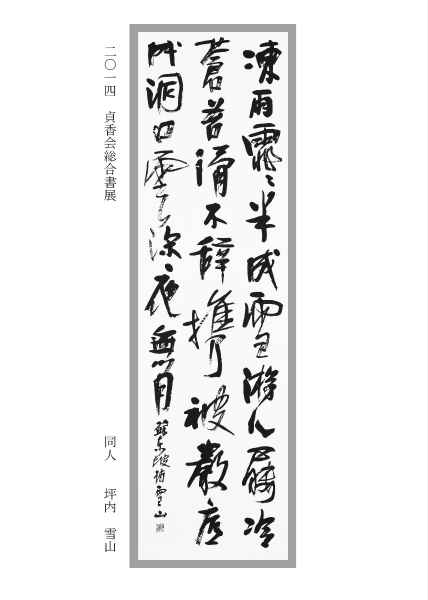 凍雨霏々半成雪游人屨冷
蒼苔滑不辭攜被巖底
眠洞口雲深夜無月 蘇東坡詩 雪山
二〇一四 貞香会総合書展 同人 坪内 雪山